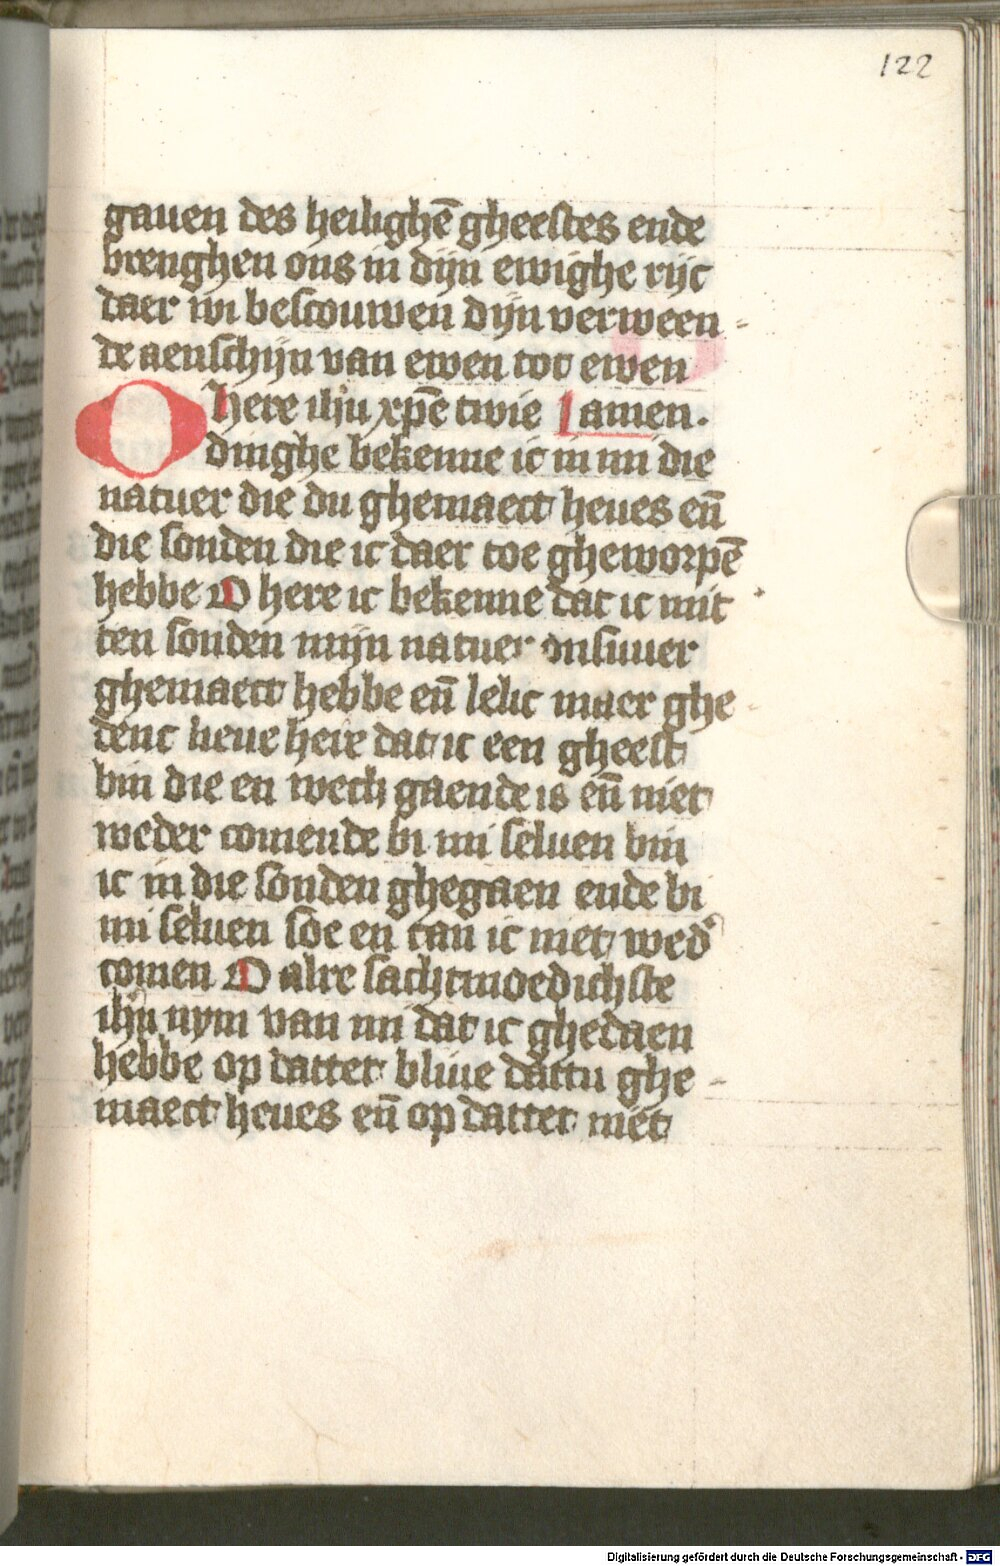 122
gauen des heilighē gheestes ende
brenghen ons in dijn ewighe rijc
daer wi bescouwen dijn verween-
de aenschijn van ewen tot ewen
O here ihu xpe twie amen.
dinghe bekenne ic in mi die
natuer die du ghemaect heues eñ
die sonden die ic daer toe gheworpē
hebbe O here ic bekenne dat ic mit
ten sonden mijn natuer onsuuer
ghemaect hebbe eñ lelic maer ghe-
denc lieue here dat ic een gheest
bin die en wech gaende is eñ niet
weder comende bi mi seluen bin
ic in die sonden ghegaen ende bi
mi seluen soe en can ic niet wed'
comen O alre sachtmoedichste
ihu nym van mi dat ic ghedaen
hebbe op datter bliue dattu ghe-
maect heues eñ op datter niet
Digitalisierung gefördert durch die Deutsche Forschungsgemeinschaft - DFG